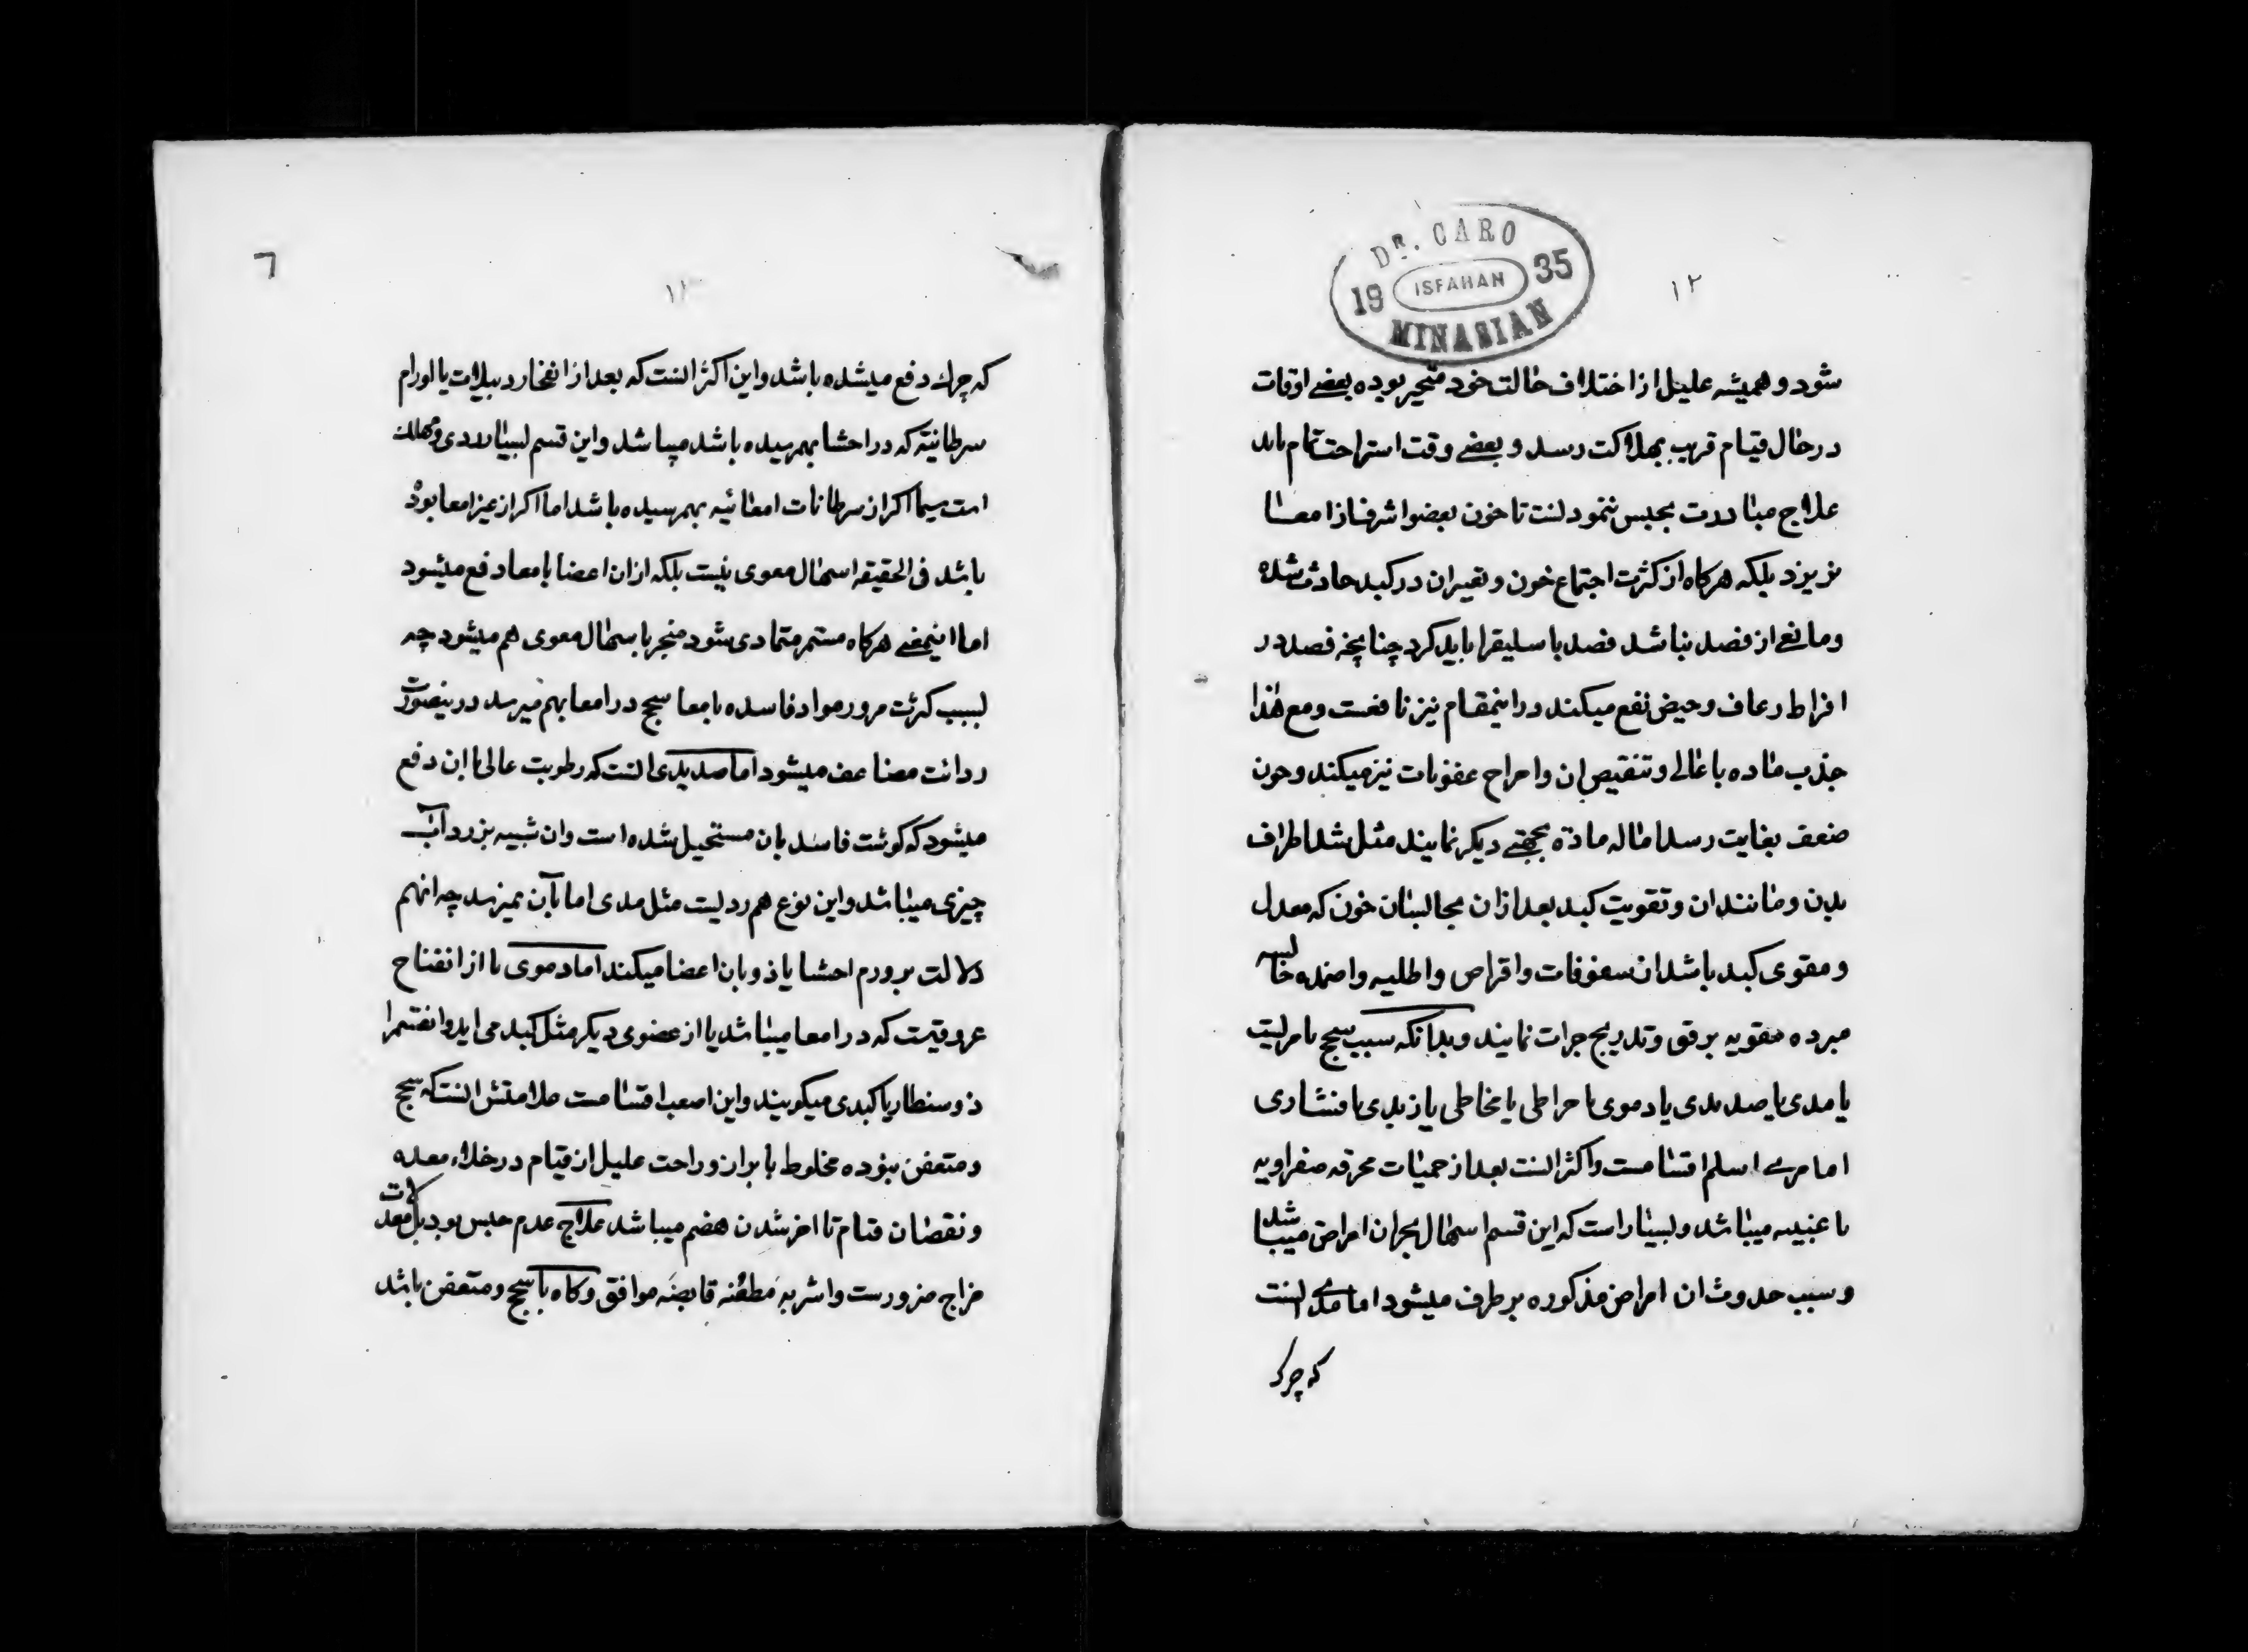 DR. CARO
19 ISFAHAN 35
MINASIAN
١٢
شود و همیشه علیل از اختلاف حالت خود متحیر بوده بعضے اوقات
در حال قیام قریب بهلاکت رسد و بعضے وقت استراحت تمام یابد
علاج مبادرت بحبس ننمودنست تا خون بعضو اشرف از امعا
نریزد بلکه هرکاه از کثرت اجتماع خون و تغیر ان در کبد حادث شده
و مانع از فصد نباشد فصد باسلیق را باید کرد چنانچه فصد در
افراط رعاف و حیض نفع میکند در اینمقام نیز نافعست و مع هذا
جذب ماده باعالی و تنقیص ان و اخراج عفونات نیز میکند و چون
ضعف بغایت رسد اماله مادة بجهتے دیکر نمایند مثل شد اطراف
بدن و مانند ان و تقویت کبد بعد از ان بحابسان خون که معدل
و مقوی کبد باشد از سفوفات و اقراص و اطلیه و اضمده حابسه
مبرده مقویه برفق و تدریج جرات نمایند و بدانکه سبب سحج یا مریست
یا مدی یا صدیدی یا دموی یا خراطی یا مخاطی یا زبدی یا
اما مرے اسلم اقسامست و اکثر انست بعد از حمیات محرقه صفراویه
یا غبیه میباشد و بسیار است که این قسم اسهال بحران امراض میباشد
و سبب حدوث ان امراض مذکوره برطرف میشود اما مدے انست
که چرک
٦
١٣
که چرك دفع میشده باشد و این اکثر انست که بعد از انفجار دبیلات یا اورام
سرطانیه که در احشا بهمرسیده باشد میباشد و این قسم بسیار ردی و مهلك
است سیما اکر از سرطانات امعائیه بهمرسیده باشد اما اکر از غیر امعا بوده
باشد فی الحقیقه اسهال معوی نیست بلکه از ان اعضا بامعا دفع میشود
اما اینمعنے هرکاه مستمر متمادی شود منجر باسهال معوی هم میشود چه
بسبب کثرت مرور مواد فاسده بامعا سحج در امعا بهم میرسد درینصورت
ردائت مضاعف میشود اما صدیدی انست که رطوبت عالی با ان دفع
میشود که کوشت فاسد بان مستحیل شده است و ان شبیه بزرداب
چیزی میباشد و این نوع هم ردیست مثل مدی اما بآن نمیرسد چه انهم
دلالت بر ورم احشا یا ذوبان اعضا میکند اما دموی یا از انفتاح
عروقیست که در امعا میباشد یا از عضوی دیکر مثل کبد می اید و انقسمرا
ذوسنطاریا کبدی میکویند و این اصعب اقسامست علامتش انست که سحج
و متعفن نبوده مخلوط با براز و راحت علیل از قیام در خلاء معده
و نقصان قیام تا اخر شدن هضم میباشد علاج عدم حبس بود بل معدلات
مزاج ضرورست و اشربه مطفئه قابضه موافق و کاه با سحج و متعفن باشد